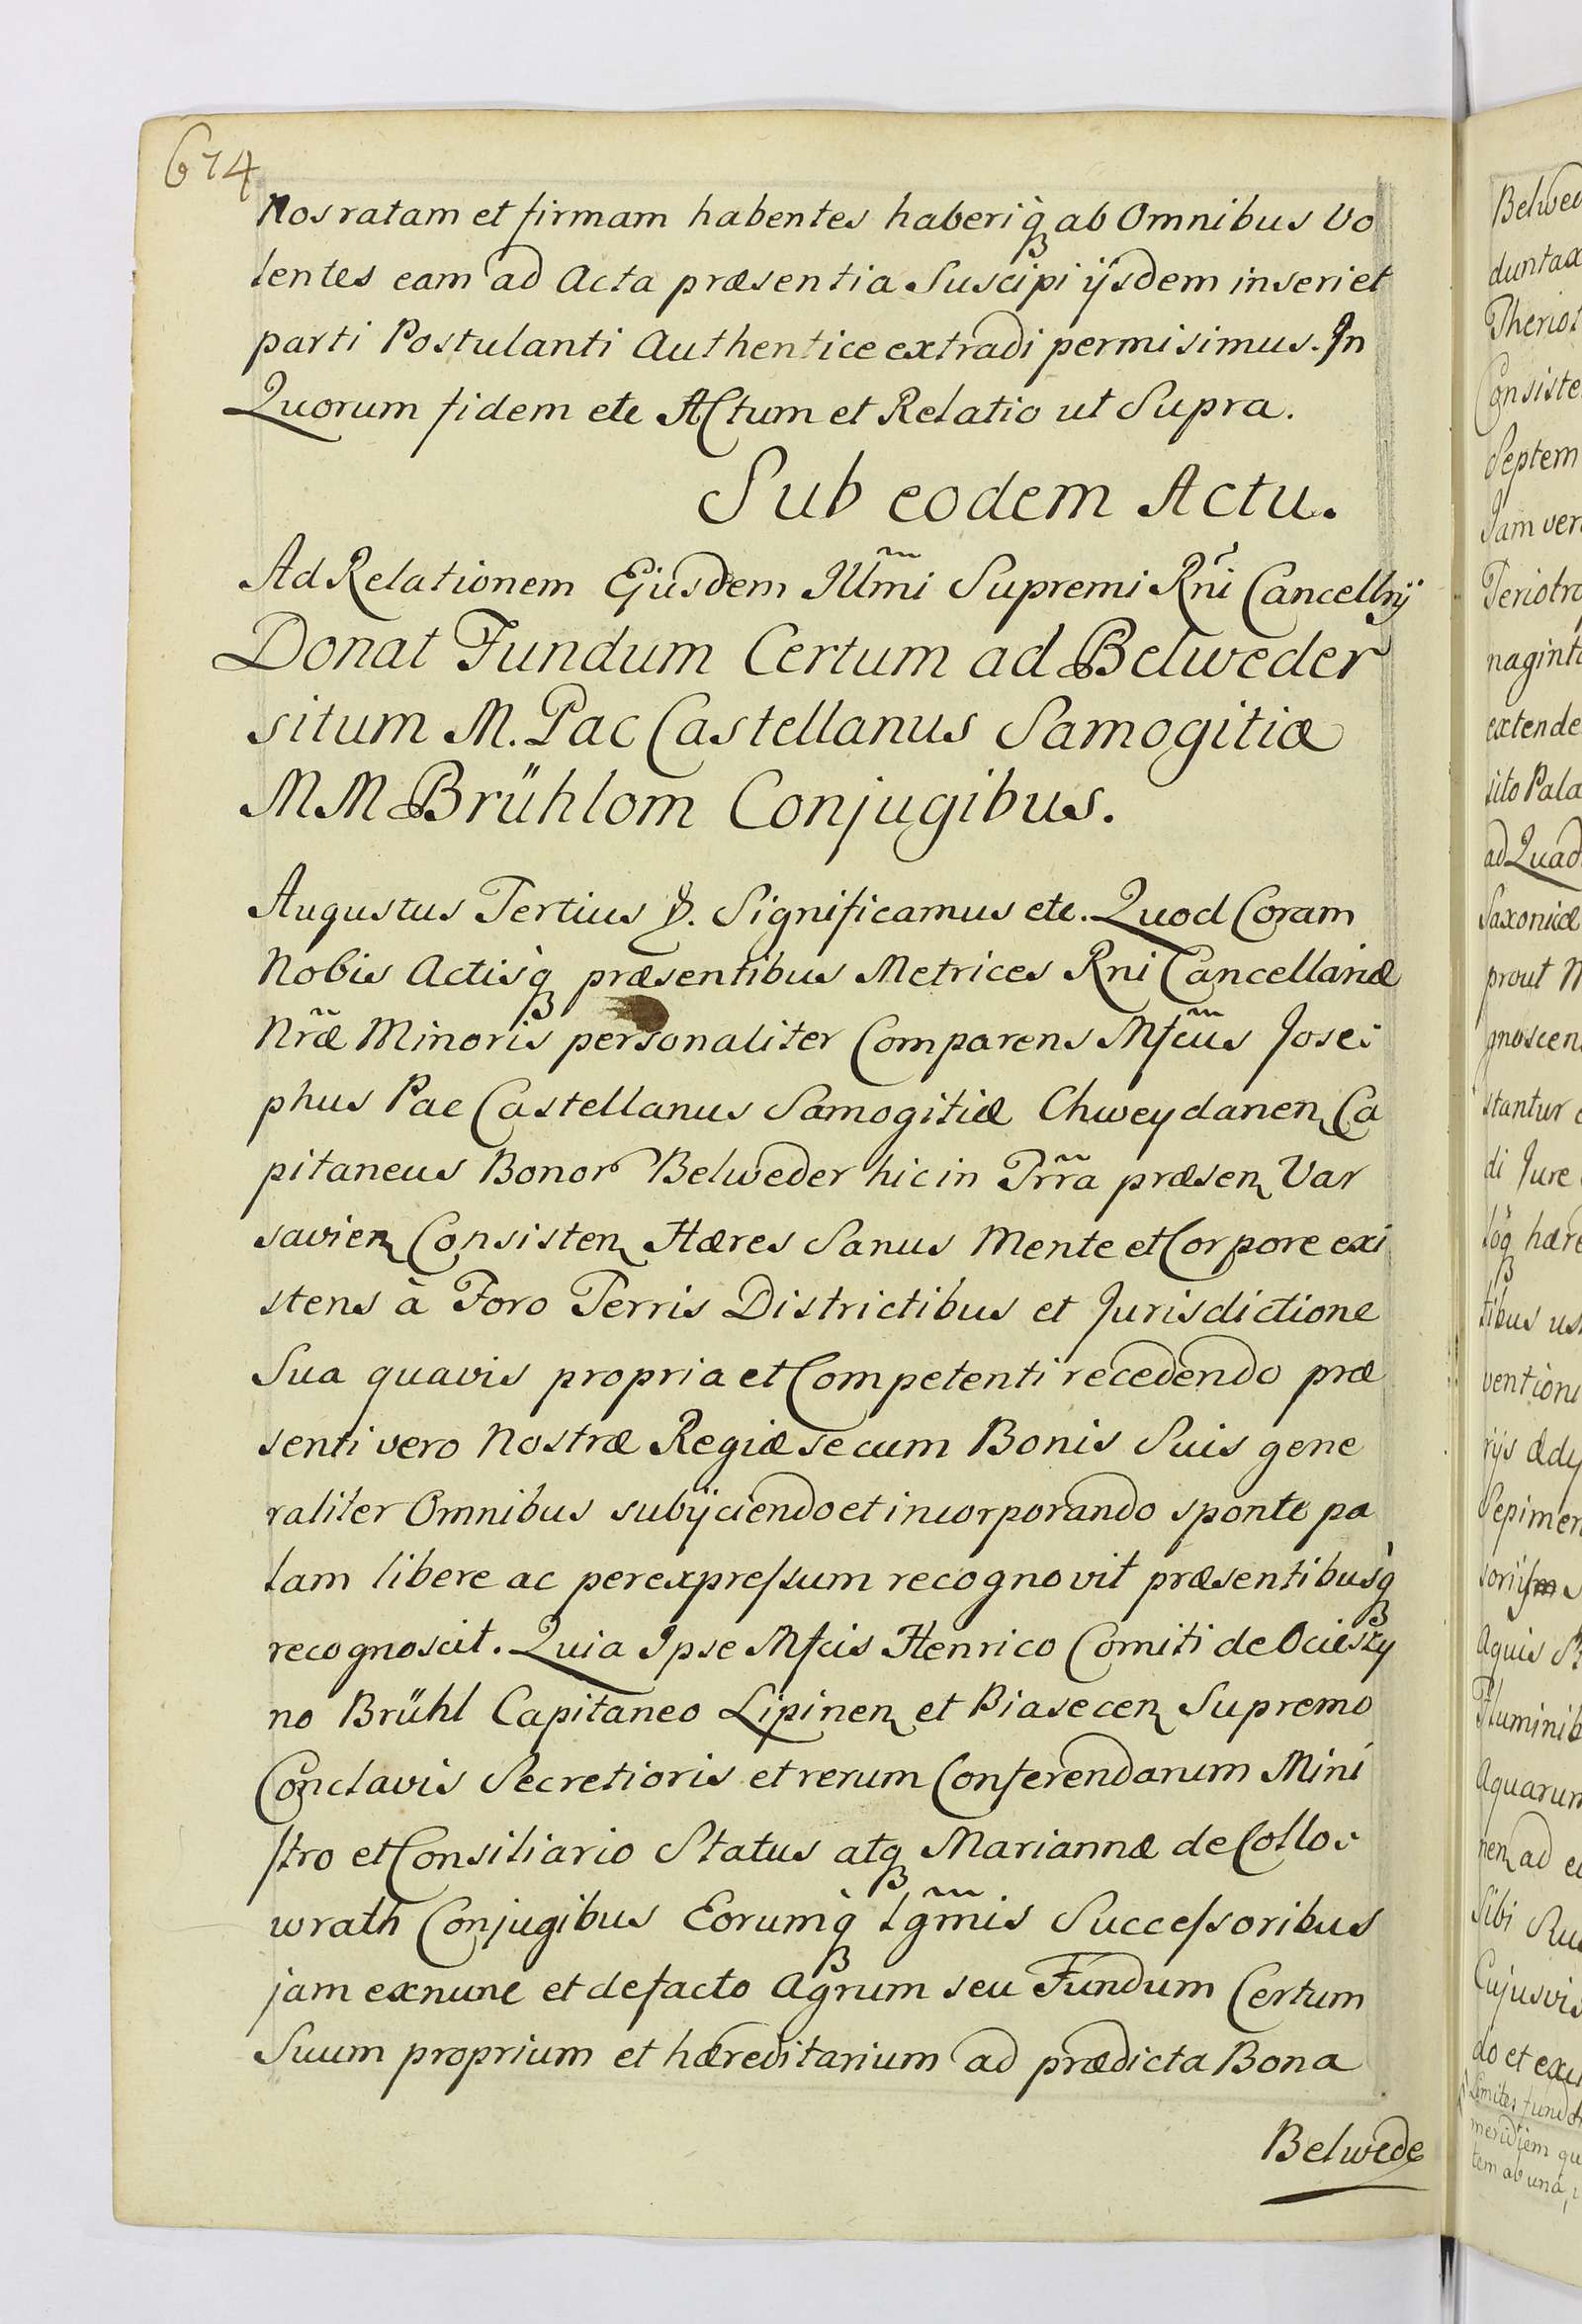 674
Nos ratam et firmam habentes haberiq̀ ab Omnibus Vo
lentes eam ad Acta præsentia Suscipi ijsdem inseri et
parti Postulanti Authentice extradi permisimus. In
Quorum fidem etc Actum et Relatio ut Supra.
Sub eodem Actu.
Ad Relationem Ejusdem Illm̃i Supremi Rñi Cancellrij
Donat Fundum Certum ad Belweder
situm M. Pac Castellanus Samogitiæ
MM Brühlom Conjugibus.
Augustus Tertius &. Significamus etc. Quod Coram
Nobis Actisq̀ præsentibus Metrices Rni Cancellariæ
Nr̃æ Minoris personaliter Comparens Mfcũs Jose:
phus Pac Castellanus Samogitiæ Chweydanen Ca
pitaneus Bonor Belweder hic in Trr̃a præsen Var
savien Consisten Hæres Sanus Mente et Corpore exi
stens à Foro Terris Districtibus et Jurisdictione
Sua quavis propria et Competenti recedendo præ
senti vero Nostræ Regiæ se cum Bonis Suis gene
raliter Omnibus subijciendo et incorporando sponte pa
lam libere ac per expressum recognovit præsentibusq̀
recognoscit. Quia Ipse Mfcis Henrico Comiti de Ocieszy
no Brühl Capitaneo Lipinen et Piasecen Supremo
Conclavis Secretioris et rerum Conferendarum Mini
stro et Consiliario Status atq Mariannæ de Collo:
wrath Conjugibus Eorumq̀ Lgm̃is Successoribus
jam exnunc et de facto Agrum seu Fundum Certum
Suum proprium et hæreditarium ad prædicta Bona
Belwede
Belwed
duntax
Theriot
Consiste
Septem
Jam ver
Teriotro
naginta
extende
sito Pala
ad Quad
Saxoniæ
prout M
gnoscen
stantur
di Jure
hære
tibus us
ventione
rijs ædy
Sepimen
Aquis St
Fluminib
Aquarum
nen ad e
Sibi
Cujusvis
do et exc
Limites fundi
meridiem qu
tem ab una,